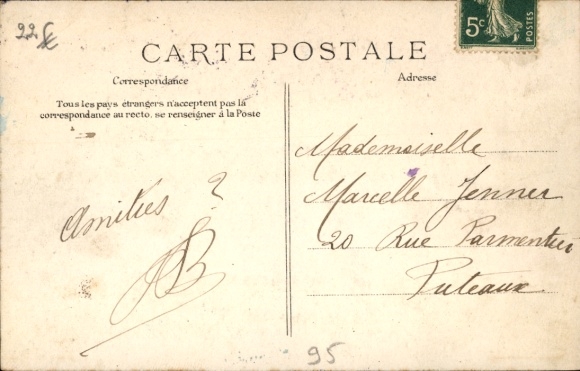 22 €
5c
CARTE POSTALE
Correspondance
Adresse
Tous les pays étrangers n'acceptent pas la
correspondance au recto, se renseigner à la Poste
Amitiés ?
Mademoiselle
Marcelle Jenner
20 Rue Parmentier
Puteaux
95